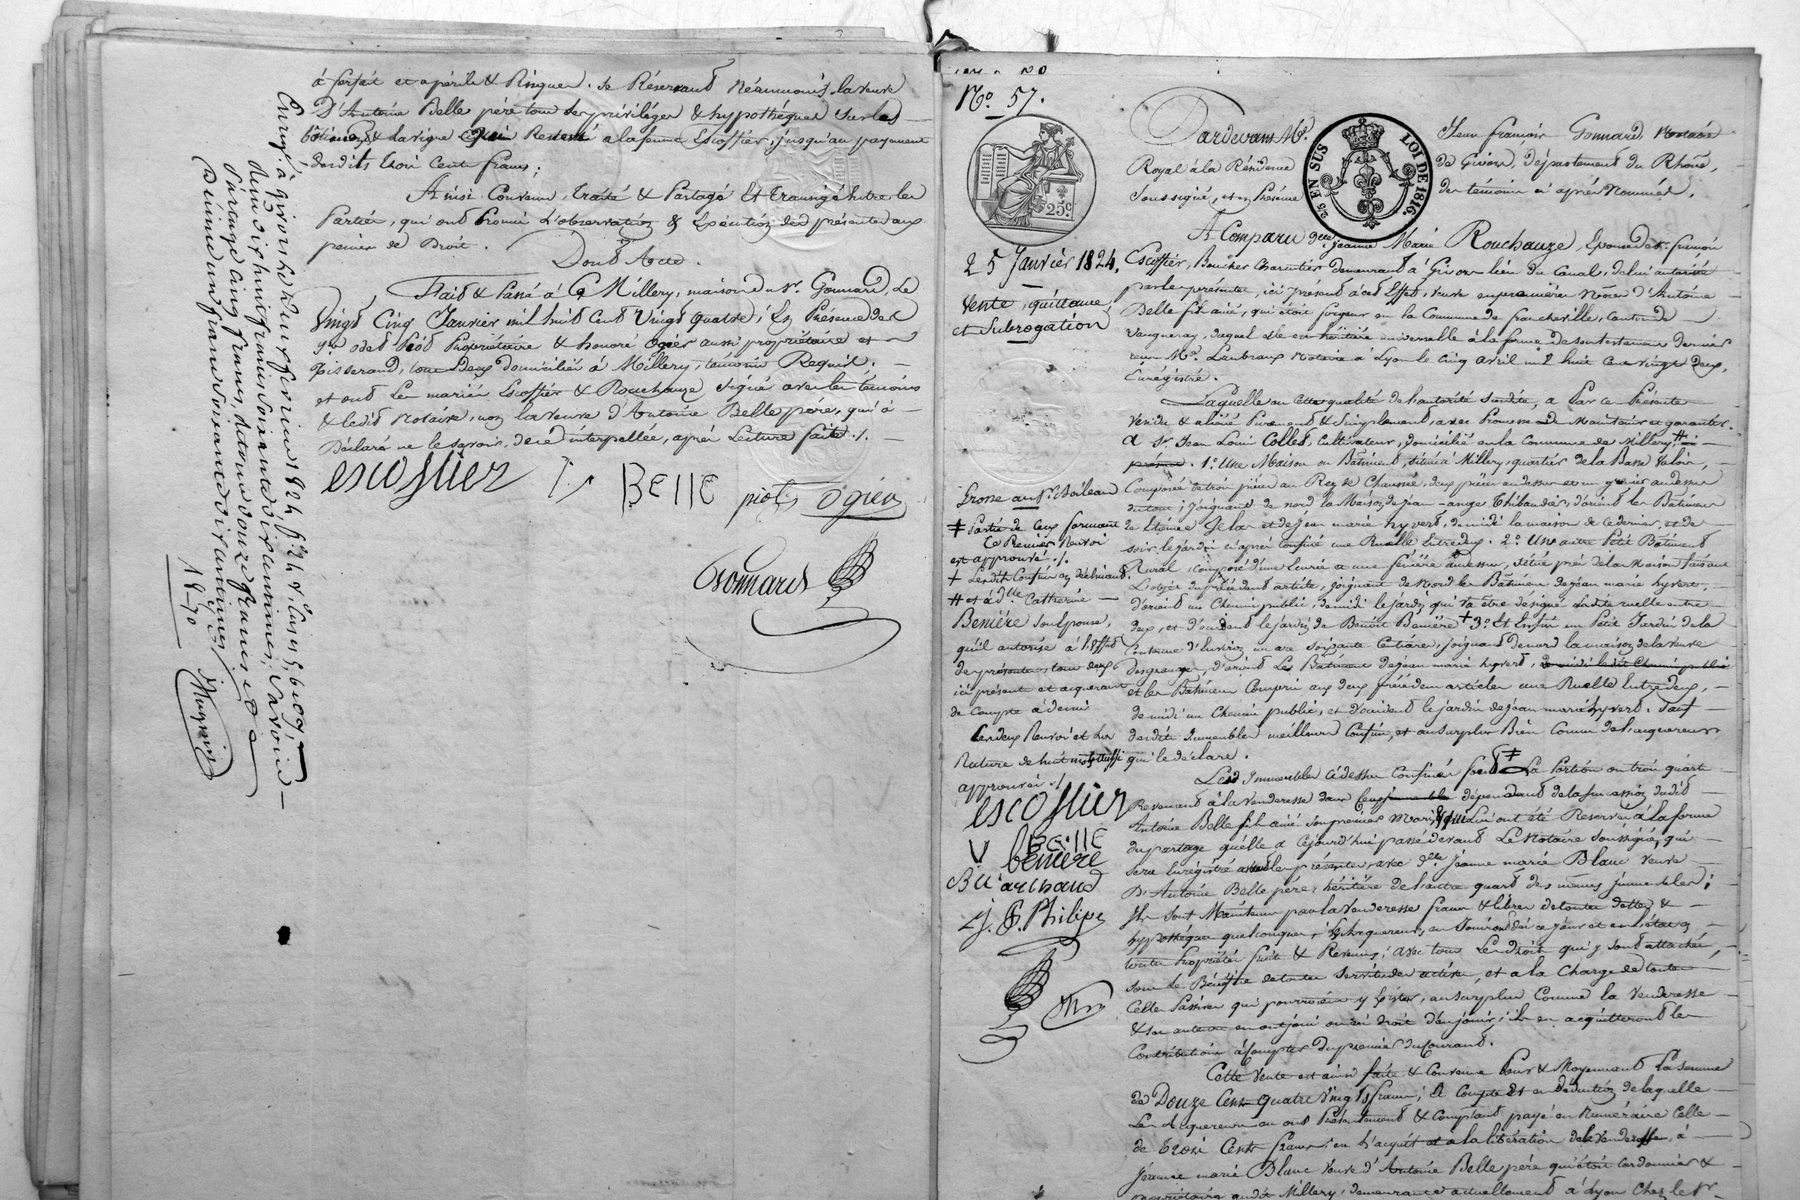 à forfait et a périls & Risques. Se Réservant Néanmoins la veuve
D'Antoine Belle père tous ses privilèges & hypothéques sur les
bâtiments & la vigne Restés a la femme Escoffier, jusqu'au payement
desdits trois Cents francs;
Ainsi Convenu, traité & Partagé Et transigé Entre les
Parties, qui ont Promis l'observation & Exécution des présentes aux
peines de Droit.
Dont Acte.
Fait & Passé à Millery, maison du Sr. Gonnard, Le
Vingt Cinq Janvier mil huit Cent Vingt quatre; En Présence de
Piot Propriétaire & honoré Ogier aussi propriétaire et
tous Deux domiciliés à Millery, témoins Requis.
et ont Les mariés Escoffier & Rouchauze signé avec les témoins
& ledit Notaire, non la veuve d'Antoine Belle père, qui a
Déclaré ne le savoir, de ce interpellée, après Lecture faite ./.
escoffier BELLE piot ogier
Gonnard
Enregé. à givors le neuf fevrier 1824 fo. 24
dix huit francs soixante dix centimes, Savoir
Partage cinq francs, douze francs
Dixième un franc soixante dix centimes
18-70
No. 57.
25 Janvier 1824.
Vente, quittance,
et Subrogation
25c
25c EN SUS
LOI DE 1816.
Pardevant Me. Jean françois Gonnard Notaire
Royal à la Résidence de Givors, département du Rhône,
Soussigné, et en Présence des témoins ci après Nommés.
A Comparu dme. Jeanne Marie Rouchauze Epouse de Sr. Simon
Escoffier, Boucher Charcutier demeurant à Givors lieu du Canal, de lui autorisée
par les présentes, ici présent à cet Effet, veuve en premières Nôces d'Antoine
Belle fils ainé, qui étoit forgeur en la Commune de francheville, Canton de
Vaugneray, duquel elle est héritière universelle à la forme de son testament dernier
reçu Me. Notaire à Lyon le cinq avril mil huit Cent vingt deux,
Enrégistré.
Laquelle en cette qualité & de l'autorité Susdite, a Par ce Présente
Vendu & aliéné Purement & Simplement, avec Promesse de Maintenir et garantir
A Sr. Jean Louis Collet, Cultivateur, domicilié en la Commune de Millery #
présent. 1o. Une Maison ou Bâtiment, située à Millery, quartier de la Basse
Composée de trois pièces au Rez de Chaussée, deux pièces audessus et un grenier audessus
du tout; Joignant de nord la Maison de Jean-ange Thibaudier, d'orient les Bâtimens
de Etienne et de Jean marie hyvert, de midi la maison de ce dernier, et de
soir le jardin ci après confiné une Ruelle Entredeux. 2o. Une autre Petit Bâtiment
Rural, composé d'une Ecurie et une fenière audessus, située près de la Maison faisant
l'objet du précédent article, joignant de Nord le Bâtiment de Jean marie hyvert,
d'orient un Chemin public, de midi le jardin qui va être désigné Ladite ruelle entre
deux, et d'occident le jardin de Benoit Benière + 3o. Et Enfin un Petit Jardin de la
Contenue d'Environ un are Soixante Centiares, joignant de nord la maison de la veuve
Desgranges, d'orient Les Bâtimens de Jean marie hyvert,
et les Bâtimens Compris aux deux précédens articles une Ruelle Entredeux,
de midi un Chemin public, et d'occident le jardin de Jean marie hyvert. Sauf
desdits Immeubles meilleurs Confins, et au surplus Bien Connus de l'acquéreur
qui le déclare.
Lesd. Immeubles ci dessus Confinés font ‡ La Portion ou trois quarts
Revenant à la venderesse dans dépendant de la succession dudit
Antoine Belle fils ainé son premier Mari, & qui lui ont été Réservés à la forme
du partage qu'elle a cejourd'hui passé devant Le Notaire soussigné, qui
sera Enrégistré avec les présentes, avec dme. Jeanne marie Blanc veuve
D'Antoine Belle père, héritière de l'autre quart des mêmes immeubles;
Ils sont Maintenus par la Venderesse francs & libres de toutes dettes &
hypothéques quelconques; L'Acquereur en Jouiront dès ce jour et en
toutes Propriétés fruits & Revenus; avec tous les droits qui y sont attachés,
sous le Bénéfice de toutes servitudes actives, et a la Charge de toutes
Celles Passives qui pourroient y Exister, au surplus Comme la venderesse
& ses auteurs en ont joui ou eu droit d'en jouir; ils en acquitteront les
Contributions à Compter du premier du Courant.
Cette vente est ainsi faite & Convenue Pour & Moyennant La somme
de Douze Cent quatre Vingts francs; A Compte Et en Déduction de laquelle
Les Acquereurs en ont Présentement & Comptant payé en Numéraire Celle
de trois Cents francs, en l'acquit et a la libération de la Venderesse, à
Jeanne marie Blanc veuve d'Antoine Belle père qui étoit Cordonnier &
propriétaire audit Millery, demeurante actuellement à Lyon Chez le Sr.
Grosse au Sr. Boileau
‡ Partie de Ceux formant
Ce Premier Renvoi
est approuvé ./.
+ Lesdits Confins en déclinant.
# et à dlle. Catherine
Benière son Epouse,
qu'il autorise à l'effet
des présentes, tous deux
ici présents et acquerant
de Compte à demi
Les deux Renvois et La
Rature de huit mots aussi
approuvés ./.
escoffier
BELLE
beniere
Marchand
J. P. Philipe